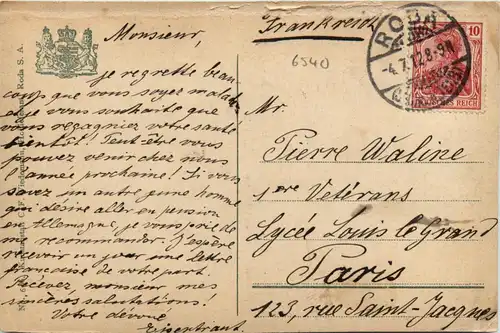 Monsieur,
je regrette beau-
coup que vous soyez malade
et je vous souhaite que
vous regagniez votre santé
bientôt! Peut-être vous
pouvez venir chez nous
l'année prochaine! Si vous
savez un autre jeune homme
qui désire aller en pension
en Allemagne je vous prie de
me recommander. J'espère
recevoir un jour une lettre
française de votre part.
Recevez, monsieur mes
sincères salutations!
Votre dévoué
Frankreich
6540
RODA
4.7.12.8-9N
10
DEUTSCHES REICH
Mr.
Pierre Waline
1ère Vétérans
Lycée Louis le Grand
Paris
123, rue Saint-Jacques
Roda S. A.